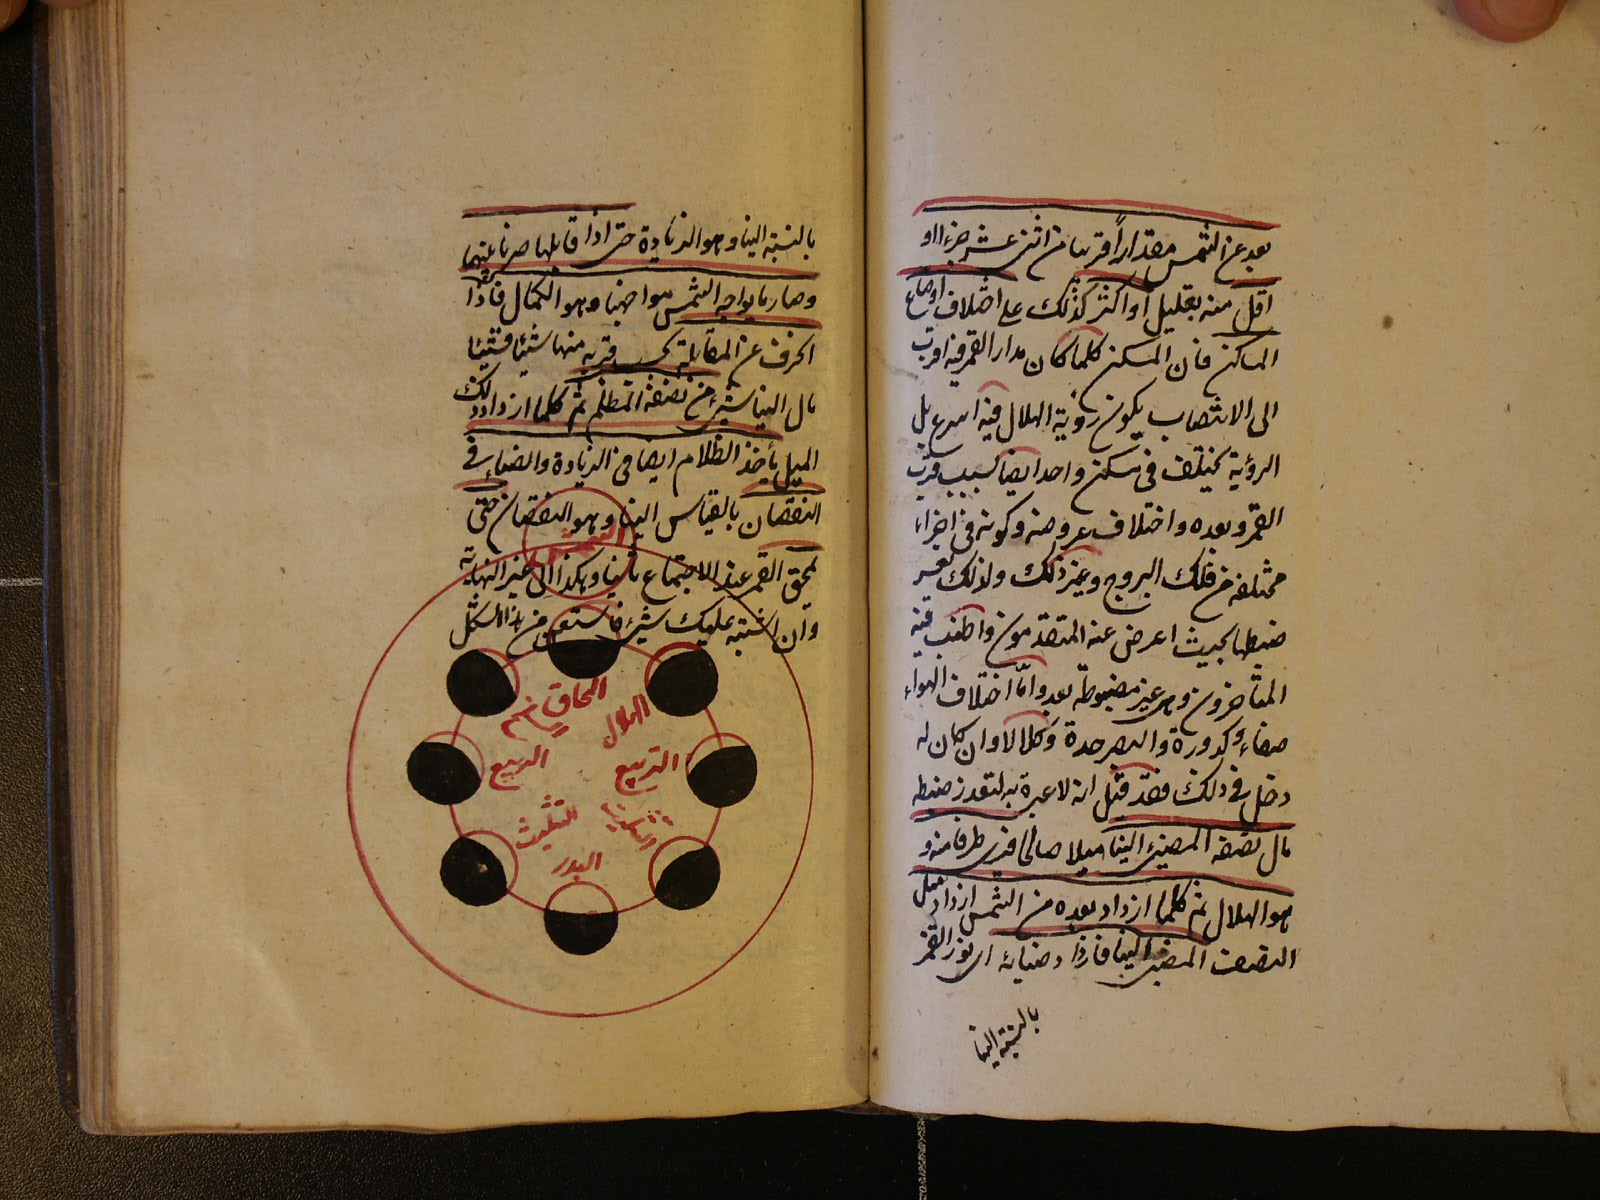 بعد عن الشمس مقدارا قريبا من اثنى عشر جزءا او
اقل منه بقليل أو اكثر كذلك على اختلاف اوضاع
المساكن فان المسكن كلما كان مدار القمر فيه اقرب
الى الانتصاب يكون رؤية الهلال فيه اسرع بل
الرؤية يختلف فى مسكن واحد ايضا بسبب قرب
القمر وبعده واختلاف عروضه وكونه فى اجزاء
مختلفة من فلك البروج وغير ذلك ولذلك تعسر
ضبطها بحيث اعرض عنه المتقدمون واطنب فيه
المتأخرون وهى غير مضبوطة بعد وامّا اختلاف الهواء
صفاء وكدورة والبصر حدة وكلالا وان كان له
دخل فى ذلك فقد قيل انه لا عبرة به لتعذر ضبطه
مال نصفه المضيئ الينا ميلا صالحا فنرى طرفا منه و
هو الهلال ثم كلما ازداد بعده من الشمس ازداد ميل
النصف المضيئ الينا فازداد ضيائه اى نور القمر
بالنسبة الينا
بالنسبة الينا وهو الزيادة حتى اذا قابلها صرنا بينهما
وصار ما يواجه الشمس مواجهنا وهو الكمال فاذا
انحرف عن المقابلة بحسب قربه منها شيئا فشيئا
مال الينا شيئ من نصفه المظلم ثم كلما ازداد ذلك
الميل يأخذ الظلام ايضا فى الزيادة والضياء فى
النقصان بالقياس الينا وهو النقصان حتى
يمحق القمر عند الاجتماع ثانيا وهكذا الى غير النهاية
وان اشتبه عليك شيئ فاستعن من هذا الشكل
الشمس
المحاق
الهلال
التربيع
التربيع
التثليث
البدر